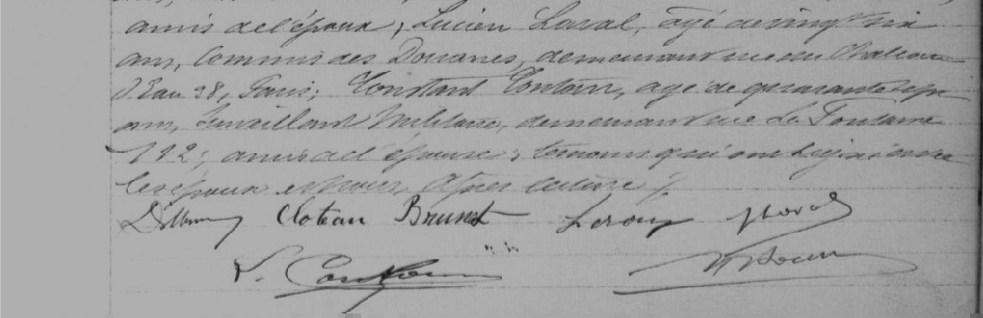 amis de l'époux; Lucien Laval, âgé de vingt six
ans, Commis des Douanes, demeurant rue du Château
d'Eau 28, Paris; Constant Contan, âgé de quarante sept
ans, Surveillant Militaire, demeurant rue La Fontaine
112; amis de l'épouse; témoins qui ont signé avec
les époux et nous, Après lecture ./.
Cloteau Brunet Leroux Laval